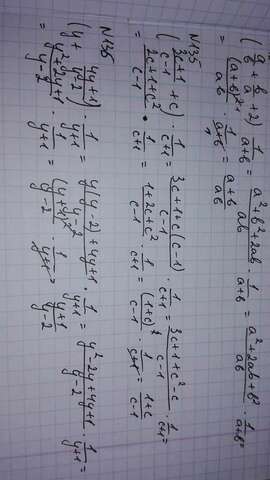 (a/b + b/a + 2) · 1/(a+b) = (a²+b²+2ab)/ab · 1/(a+b) = (a²+2ab+b²)/ab · 1/(a+b) =
= (a+b)²/ab · 1/(a+b) = (a+b)/ab
N135
((3c+1)/(c-1) + c) · 1/(c+1) = (3c+1+c(c-1))/(c-1) · 1/(c+1) = (3c+1+c²-c)/(c-1) · 1/(c+1) =
= (2c+1+c²)/(c-1) · 1/(c+1) = (1+2c+c²)/(c-1) · 1/(c+1) = (1+c)²/(c-1) · 1/(c+1) = (1+c)/(c-1)
N135
(y + (4y+1)/(y-2)) · 1/(y+1) = (y(y-2)+4y+1)/(y-2) · 1/(y+1) = (y²-2y+4y+1)/(y-2) · 1/(y+1) =
= (y²+2y+1)/(y-2) · 1/(y+1) = (y+1)²/(y-2) · 1/(y+1) = (y+1)/(y-2)